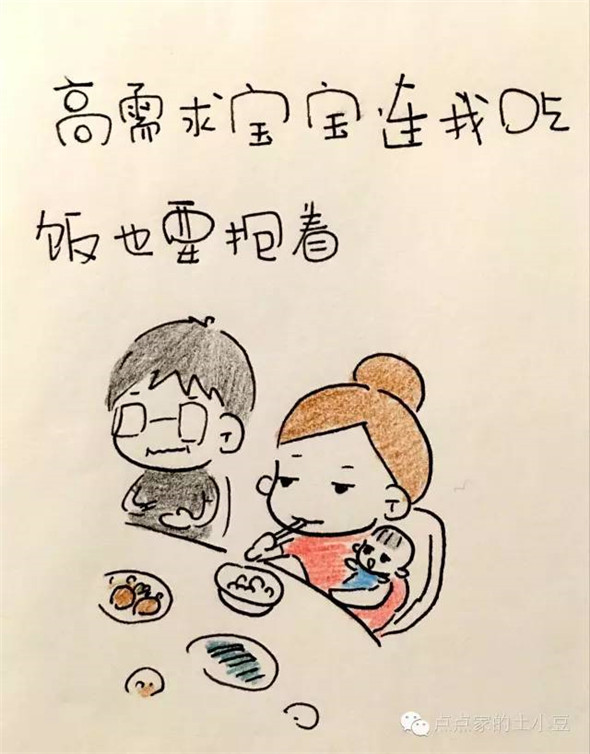 高需求宝宝连我吃
饭也要抱着
点点家的土小豆